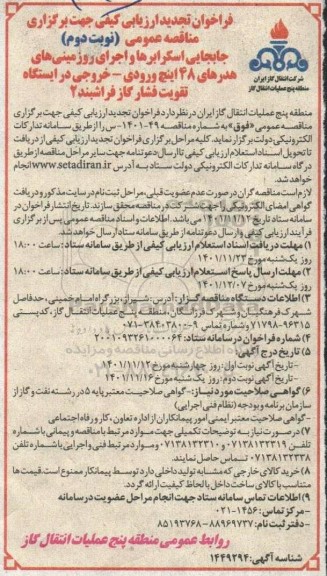 فراخوان تجدید ارزیابی کیفی جهت برگزاری
مناقصه عمومی (نوبت دوم)
جابجایی اسکرابرها و اجرای روزمینی‌های
هدرهای ۴۸ اینچ ورودی - خروجی در ایستگاه
تقویت فشار گاز فراشبند۲
شرکت انتقال گاز ایران
منطقه پنج عملیات انتقال گاز
منطقه پنج عملیات انتقال گاز ایران در نظر دارد فراخوان تجدید ارزیابی کیفی جهت برگزاری
مناقصه عمومی «فوق» به شماره مناقصه ۴۹-۱۴۰۱-س را از طریق سامانه تدارکات
الکترونیکی دولت برگزار نماید. کلیه مراحل برگزاری فراخوان تجدید ارزیابی کیفی از دریافت
تا تحویل اسناد استعلام ارزیابی کیفی تا ارسال دعوتنامه جهت سایر مراحل مناقصه از طریق
درگاه سامانه تدارکات الکترونیکی دولت ستاد به آدرس www.setadiran.ir انجام
خواهد شد.
لازم است مناقصه گران در صورت عدم عضویت قبلی، مراحل ثبت نام در سایت مذکور و دریافت
گواهی امضای الکترونیکی را جهت شرکت در مناقصه محقق سازند. تاریخ انتشار فراخوان در
سامانه ستاد تاریخ ۱۴۰۱/۱۱/۱۲ می باشد. اطلاعات و اسناد مناقصه عمومی پس از برگزاری
فرآیند ارزیابی کیفی و ارسال دعوتنامه از طریق سامانه ستاد ارسال خواهد شد.
۱) مهلت دریافت اسناد استعلام ارزیابی کیفی از طریق سامانه ستاد: ساعت ۱۸:۰۰
روز یکشنبه مورخ ۱۴۰۱/۱۱/۲۳
۲) مهلت ارسال پاسخ استعلام ارزیابی کیفی از طریق سامانه ستاد: ساعت ۱۸:۰۰
روز یکشنبه مورخ ۱۴۰۱/۱۲/۰۷
۳) اطلاعات دستگاه مناقصه گزار: آدرس: شیراز، بزرگراه امام خمینی، حدفاصل
شهرک فرهنگیان و شهرک بزین، منطقه پنج عملیات انتقال گاز، کدپستی
۹۶۳۱۵-۷۱۷۹۸ و شماره تماس ۹-۳۸۴۰۳۸۰۰-۰۷۱
۴) شماره فراخوان در سامانه ستاد: ۲۰۰۱۰۹۳۲۶۱۰۰۰۰۶۴
۵) تاریخ درج آگهی
- تاریخ آگهی نوبت اول: روز چهارشنبه مورخ ۱۴۰۱/۱۱/۱۲
- تاریخ آگهی نوبت دوم: روز یک شنبه مورخ ۱۴۰۱/۱۱/۱۶
۶) گواهی صلاحیت مورد نیاز: - گواهی صلاحیت معتبر پایه ۵ در رشته نفت و گاز از
سازمان برنامه و بودجه (نظام فنی اجرایی)
- گواهی صلاحیت معتبر ایمنی امور پیمانکاران از اداره تعاون، کار و رفاه اجتماعی
۷) در صورت نیاز به توضیحات تکمیلی جهت موارد مرتبط با مناقصه و پیمانی با شماره
تلفن ۰۷۱۳۸۱۳۲۳۱۹ و ۰۷۱۳۸۱۳۲۳۱۰ و موارد مرتبط فنی و اجرایی با شماره تلفن
۰۷۱۳۸۱۳۲۳۳۸ تماس حاصل نمایند.
۸) خرید کالای خارجی که مشابه تولید داخلی دارد توسط پیمانکار ممنوع است. قیمت ها
متناسب با کالای ساخت داخل با لحاظ کیفیت ارائه گردد.
۹) اطلاعات تماس سامانه ستاد جهت انجام مراحل عضویت در سامانه
- مرکز تماس: ۱۴۵۶-۰۲۱
- دفتر ثبت نام: ۸۸۹۶۹۷۳۷ - ۸۵۱۹۳۷۶۸
روابط عمومی منطقه پنج عملیات انتقال گاز
شناسه آگهی: ۱۴۴۹۲۹۴